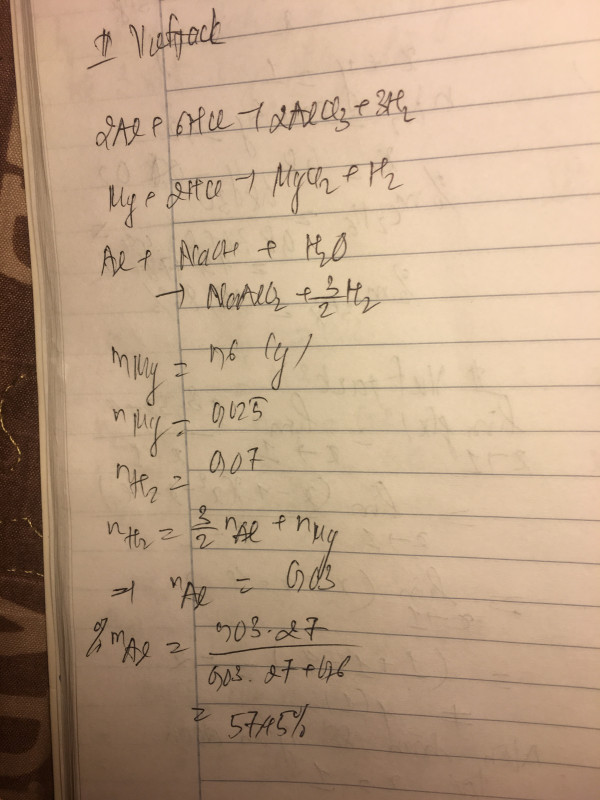 # Vietjack
2Al + 6HCl → 2AlCl3 + 3H2
Mg + 2HCl → MgCl2 + H2
Al + NaOH + H2O
→ NaAlO2 + 3/2 H2
mMg = 0,6 (g)
nMg = 0,025
nH2 = 0,07
nH2 = 3/2 nAl + nMg
⇒ nAl = 0,03
%mAl = 0,03.27 / 0,03.27+0,6
= 57,45%